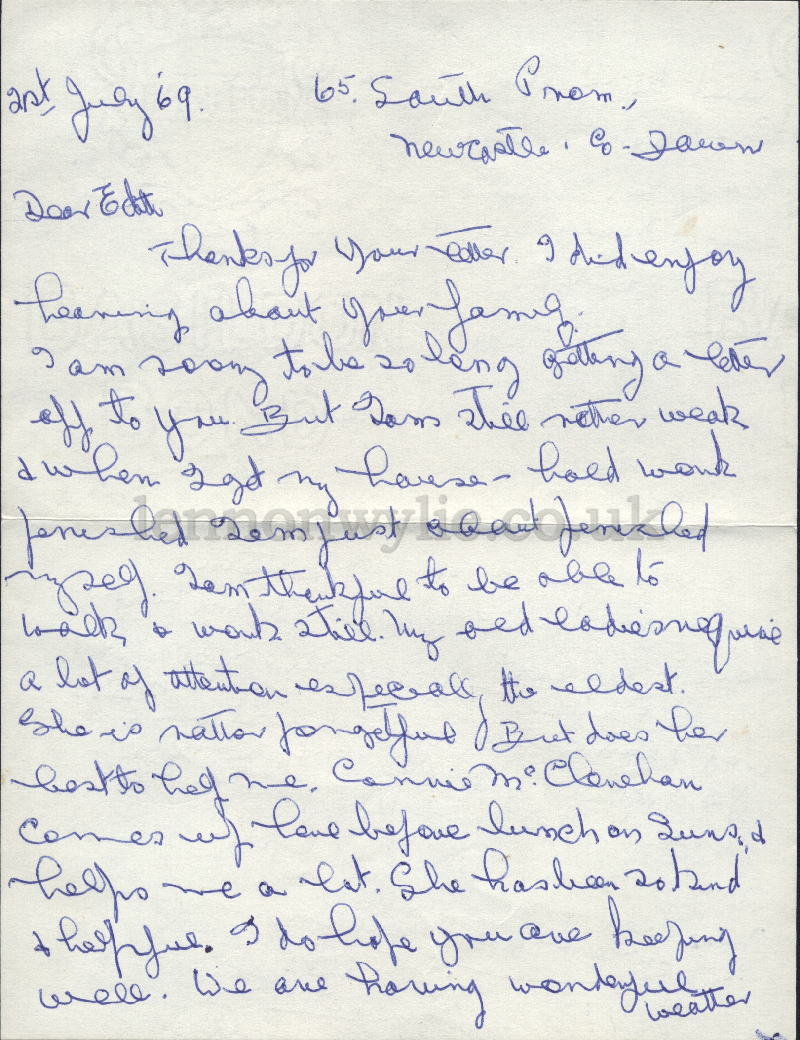 21st July '69.    65. South Prom.,
Newcastle. Co. Down
Dear Edith
Thanks for your letter. I did enjoy
hearing about your family.
I am sorry to be so long getting a letter
off to you. But I am still rather weak
& when I get my house-hold work
finished I am just about finished
lennonwylie.co.uk
myself. I am thankful to be able to
walk & work still. My old ladies require
a lot of attention especially the eldest.
She is rather forgetful, But does her
best to help me. Connie McClenehan
comes up here before lunch on Suns, &
helps me a lot. She has been so kind
& helpful. I do hope you are keeping
well. We are having wonderful
weather